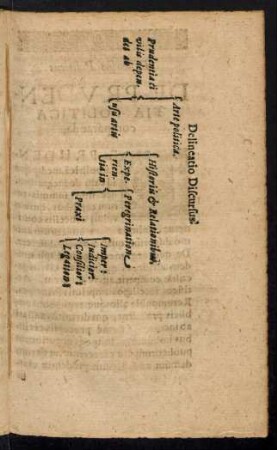 Delineatio Discursus.
Prudentia ci
vilis depen
det ab
Arte politica.
usu artiu
Historiis & Relationibus,
Expe-
rien-
tia in
Peregrinatione
Praxi
Imper:
Iudicior:
Consilior:
Legation: